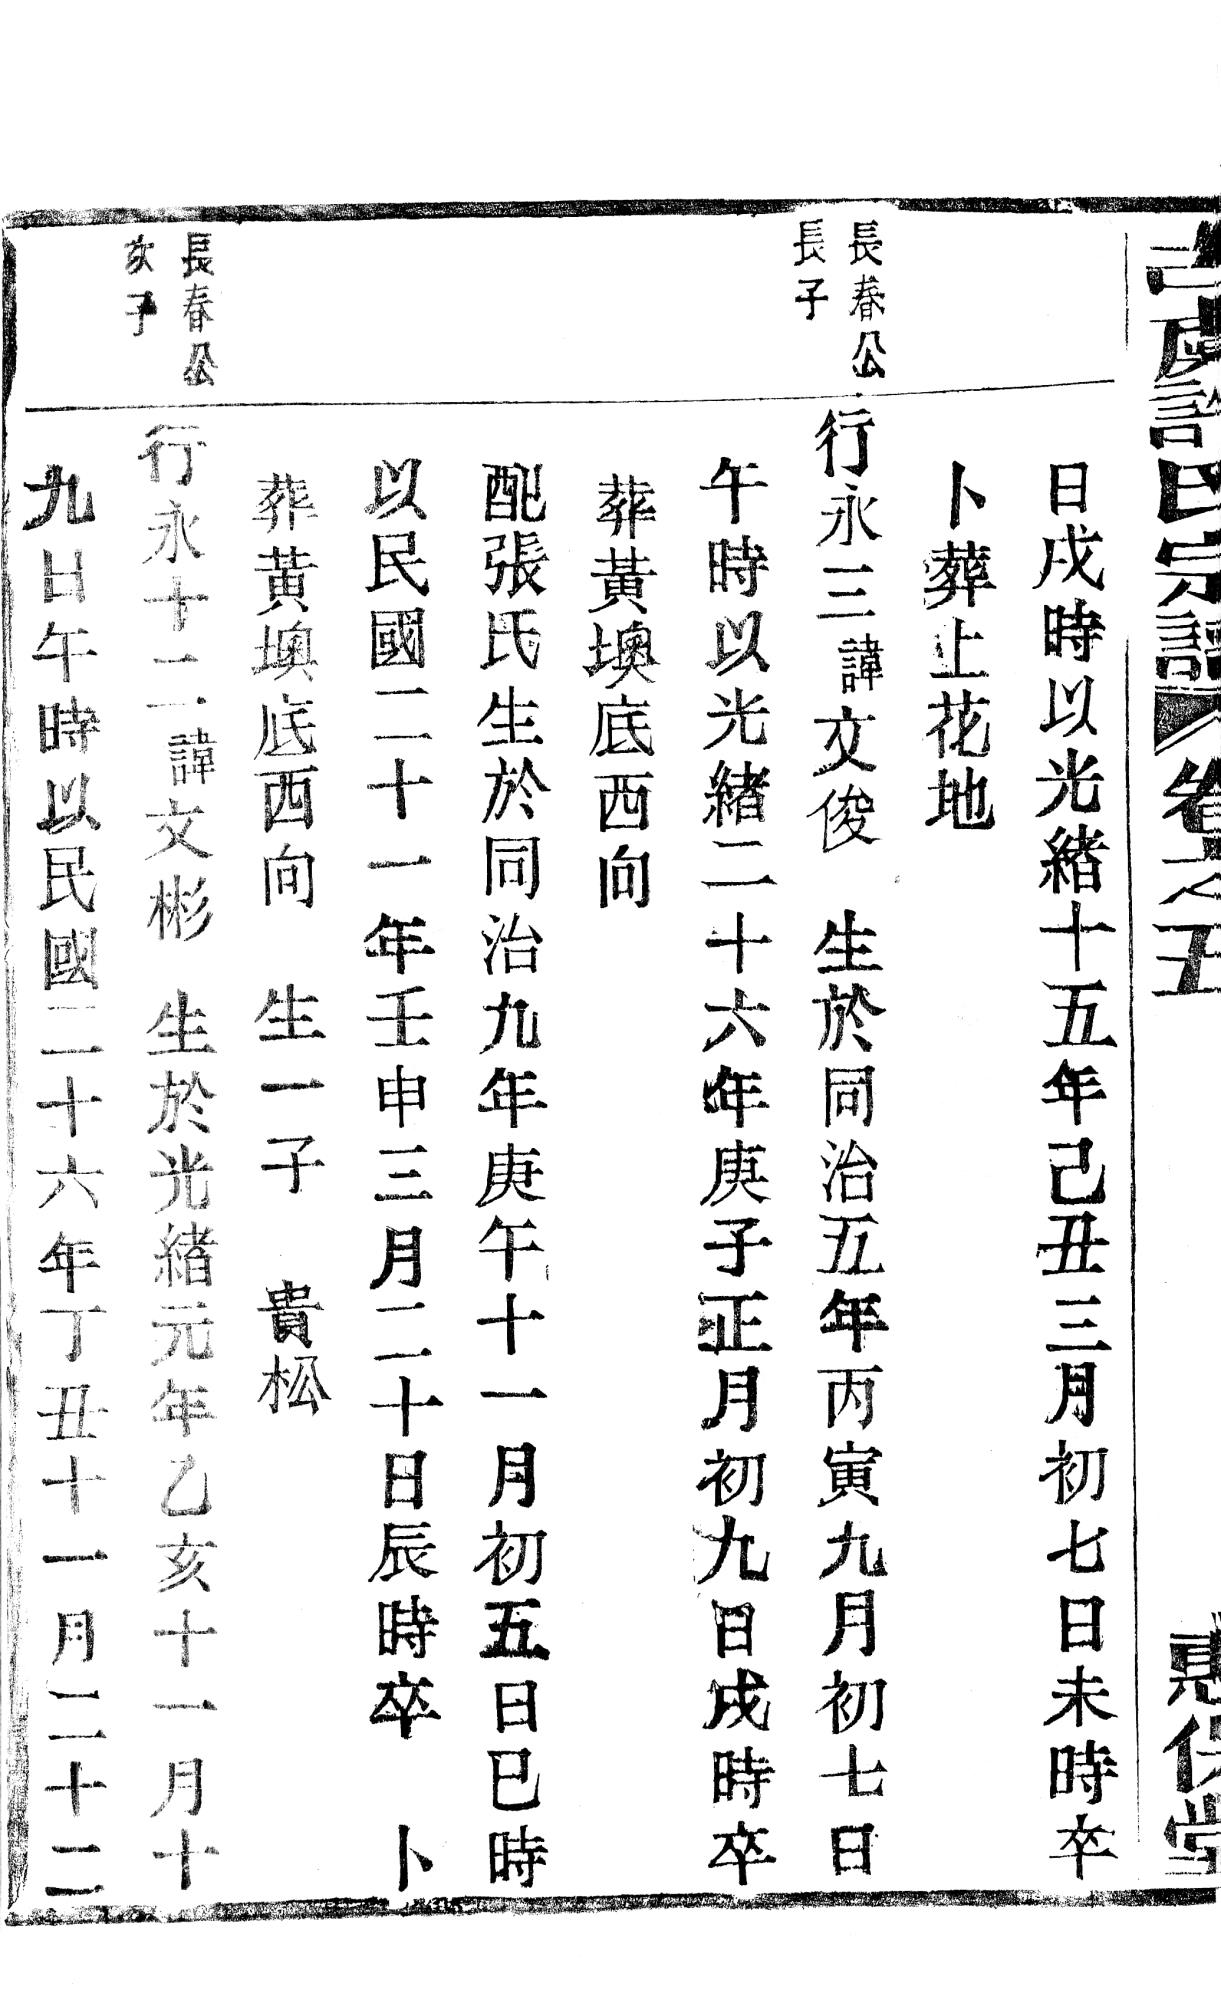 古虞許氏宗譜 卷之五 惠保堂
日戌時以光緒十五年己丑三月初七日未時卒
卜葬上花地
長春公
長子
行永三諱文俊 生於同治五年丙寅九月初七日
午時以光緒二十六年庚子正月初九日戌時卒
葬黃墺底西向
配張氏生於同治九年庚午十一月初五日巳時
以民國二十一年壬申三月二十日辰時卒 卜
葬黃墺底西向 生一子 貴松
長春公
次子
行永十二諱文彬 生於光緒元年乙亥十一月十
九日午時以民國二十六年丁丑十一月二十二